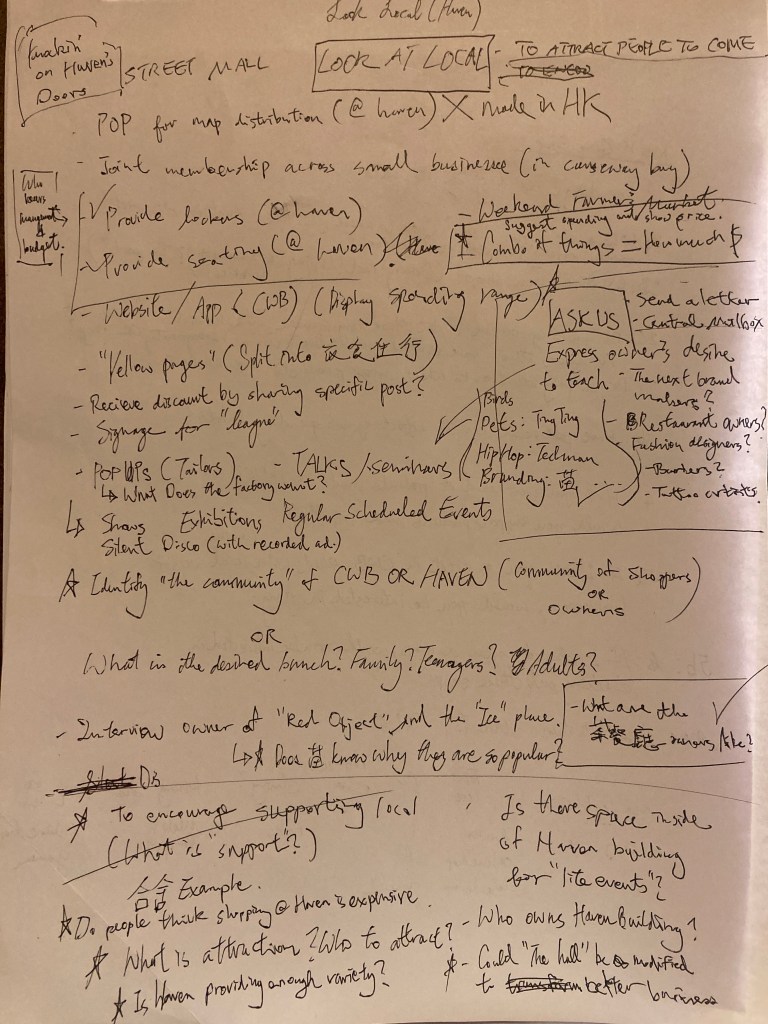 Look Local (Haven)
Knockin' on Haven's Doors
STREET MALL
LOOK AT LOCAL
- TO ATTRACT PEOPLE TO COME
POP for map distribution (@ haven) X made in HK
- Joint membership across small businesses (in causeway bay)
Who
management
& budget.
- Provide lockers (@haven)
- Weekend Farmer's Market
- Provide seating (@ haven)
Suggest spending and show price.
Combo of things = How much $
- Website / App < CWB) (Display spending range)
- "Yellow pages" (Split into 衣食住行)
- Recieve discount by sharing specific post?
- Signage for "league"
- POP UPS (Tailors)
↳ What Does the factory want?
- TALKS / seminars
↳ Shows Exhibitions Regular Scheduled Events
Silent Disco (with recorded ad.)
ASK US
- Send a letter
- Central Mailbox
Express owner's desire
to teach
- The next brand
makers?
Birds
Pets: Ting Ting
HipHop: Tedman
Branding: 苗 ....
- Restaurant owners?
- Fashion designers?
- Barbers?
- Tattoo artists
☆ Identify "the community" of CWB OR HAVEN (Community of Shoppers
OR
owners)
OR
What is the desired bunch? Family? Teenagers? Adults?
- Interview owner of "Red Object" and the "Ice" place.
↳☆ Does 苗 know why they are so popular?
- What are the
茶餐廳 owners like?
☆ To encourage supporting local
(What is "support"?)
Example.
☆ Do people think shopping @ Haven is expensive
☆ What is attraction? Who to attract?
☆ Is Haven providing enough variety?
Is there space inside
of Haven building
for "lite events"?
- Who owns Haven Building?
- Could "The hall" be modified
to better business